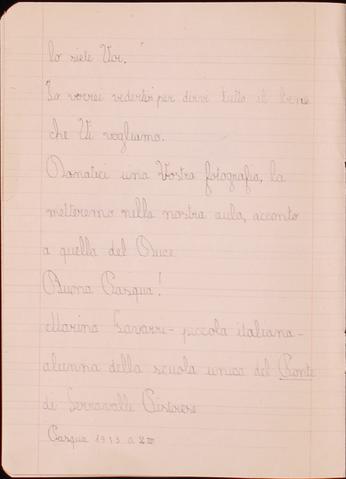 lo siete Voi.
Io vorrei vedervi per dirvi tutto il bene
che Vi vogliamo.
Donateci una Vostra fotografia, la
metteremo nella nostra aula, accanto
a quella del Duce
Buona Pasqua!
Marina Lavarri - piccola italiana -
alunna della scuola unica del Ponte
di Serravalle Pistoiese
Pasqua 1935 a XIII